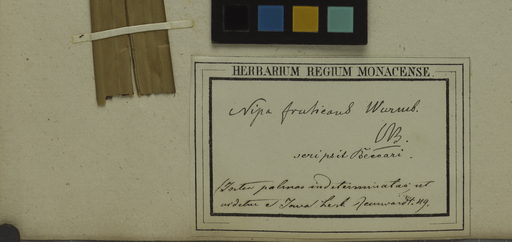 HERBARIUM REGIUM MONACENSE.
Nipa fruticans Wurmb.
scripsit Beccari.
(Inter palmas indeterminatas, ut
videtur e Java herb. Reinwardt.